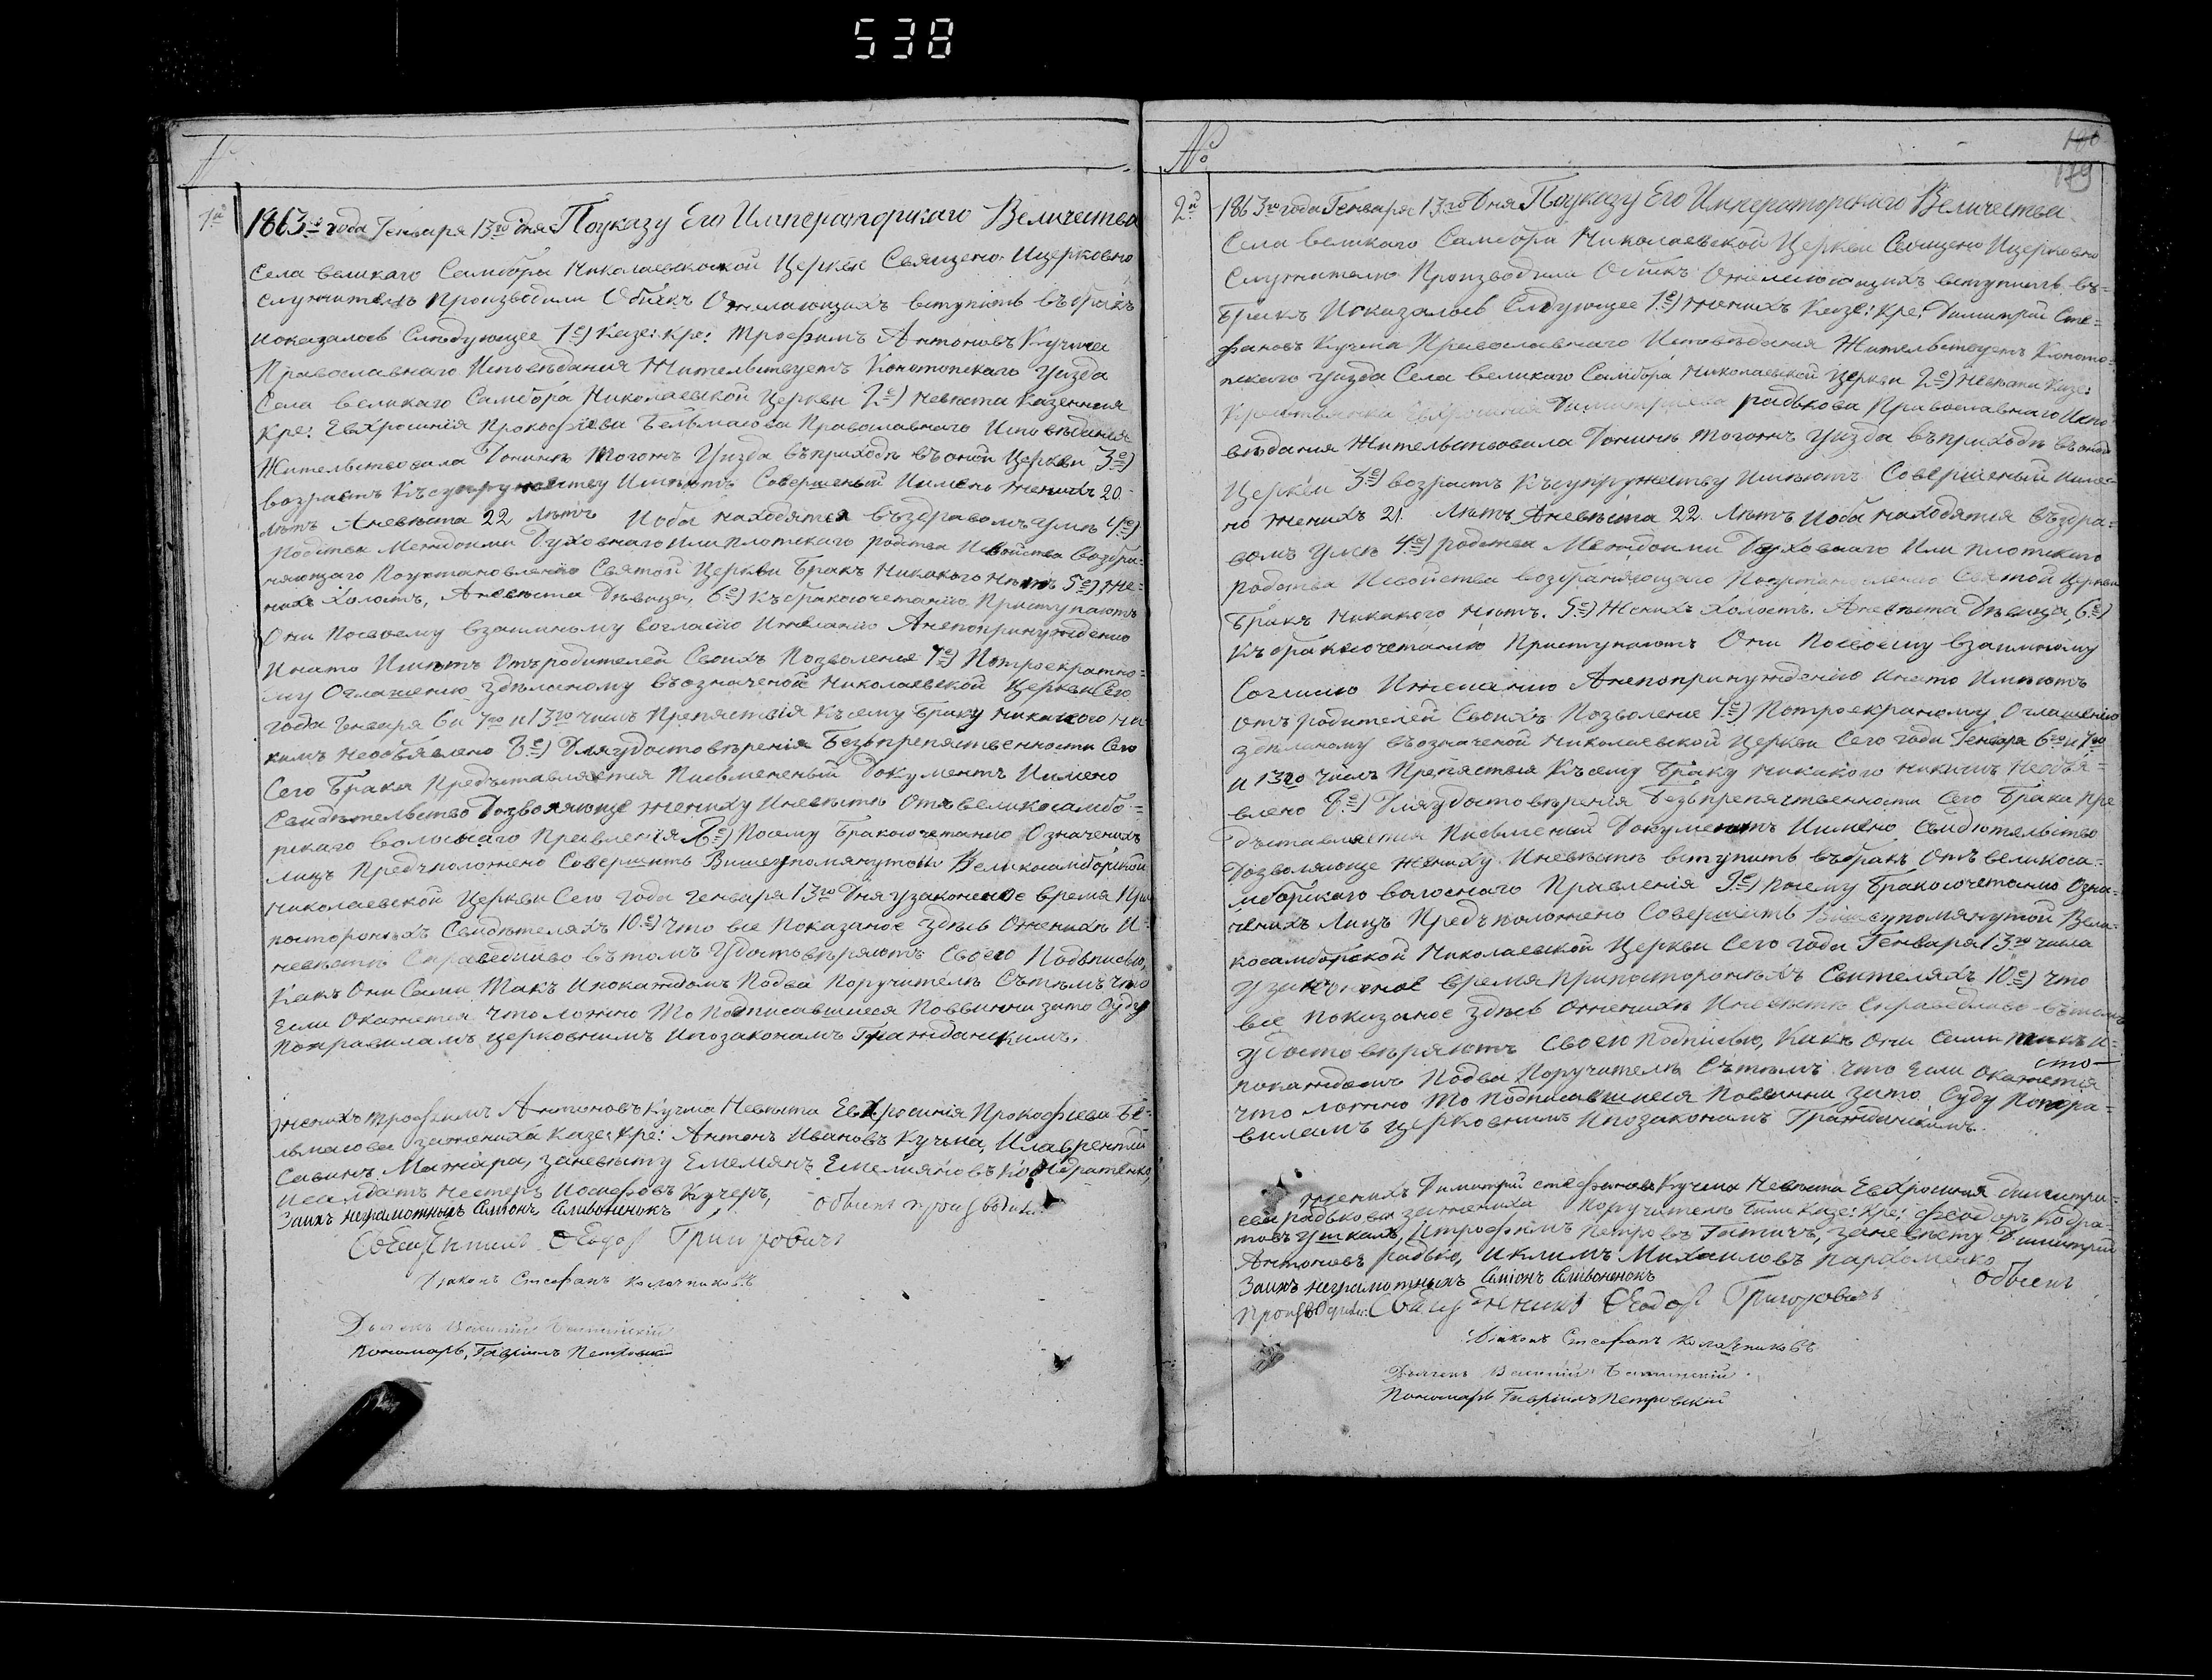 538
№
1й
1863го года Генваря 13го дня Поуказу Его Императорскаго Величества
Села великаго Самбора Николаевской Церкви Священо Ицерковно
служители Производили Обыскъ Ожелающихъ вступить въ бракъ
иоказалось Следующее 1е) Казе: кре: Трофимъ Антоновъ Кучма
Православнаго Исповѣдания Жительствуетъ Конотопскаго Уизда
Села великаго Самбора Николаевской Церкви 2е) невѣста Казенная
кре: Евхросинія Прокофіева Бельмасова Православнаго Исповѣдания
Жительствовала Донинѣ Тогожъ Уизда въприходѣ въоной Церкви 3е)
возрастъ Ксупружеству Имѣютъ Совершеный Имено женихъ 20
лѣтъ Аневѣста 22 лѣтъ Иоба находятся въздравомъ умѣ 4е)
Родства Междоими Духовнаго Или плотскаго родства Исвойства возбра-
няющаго Поустановлению Святой Церкви Бракъ Никакого нѣтъ 5е) Же-
нихъ Холостъ, Аневѣста Дѣвица, 6е) къ бракосочетанію Приступаютъ
Они Посвоему взаимному Согласію Ижеланію Анепопринуждению
Инато Имѣютъ Отъродителей Своихъ Позволения 7е) Потроекратно-
му Оглашению зделаному въозначеной Николаевской Церкви Сего
года Генваря 6и 7го и 13го числъ Препяствія Ксему Браку никакого ни-
кимъ необявлено 8е) Дляудостовѣренія Безъпрепяственности Сего
Сего Брака Предъставляется Письменый Документъ Имено
Свидѣтельство Дозволяюще жениху Иневѣстѣ Отъ великосамбо-
рскаго волоснаго Правленія 9е) Посему Бракосочетанію Означеныхъ
лицъ Предъположено Совершить Вишеупомянутой Великосамборской
Николаевской Церкви Сего года Генваря 13го Дня узаконеное время При
постороныхъ Свидѣтеляхъ 10е) Что все Показаное здѣсь Оженихѣ И-
невѣстѣ Справедливо въ томъ Удостовѣряютъ Своею Подъписью,
Какъ Они Сами Такъ Ипокаждомъ Подва Поручителѣ Сътѣмъ что
Если Окажется Чтоложно То Подписавшиеся Повинни зато Суду
Поправиламъ церковнимъ Ипозаконамъ Гражданскимъ.
женихъ Трофимъ Антоновъ Кучма Невѣста Евхросинія Прокофіева Бе-
льмасова зажениха Казе: кре: Антонъ Ивановъ Кучма, Илаврентій
Савинъ Мажара, заневѣсту Емемянъ Емелияновъ Кондратенко,
Исалдатъ Нестеръ Иосифовъ Кучеръ,
За ихъ неграмотныхъ Симіонъ Сливоненокъ обыскъ производили
Священникъ Ѳеодоръ Григоровичъ
Діаконъ Стефанъ Колочниковъ
Дьячекъ Василій
Пономарь, Гавріилъ Петровскій
№
180
179
2й
1863го года Генваря 13го Дня Поуказу Его Императорскаго Величества
Села великаго Самбора Николаевской Церкви Священо Ицерковно
Служители Производили Обыскъ Ожелающихъ вступить въ-
Бракъ Иоказалось Следующее 1е) женихъ Казе: кре: Димитрій Сте-
фановъ Кучма Православнаго Исповѣдания Жительствуетъ Коното-
пскаго Уизда Села великаго Самбора Николаевской Церкви 2е) Невѣста Казе:
Крестьянка Евхросинія Димитріева радькова Православнаго Испо-
вѣдания Жительствовала Донинѣ Тогожъ Уизда въприходѣ въоной
Церкви 3е) возрастъ Ксупружеству Имѣютъ Совершеный Име-
но женихъ 21. лѣтъ Аневѣста 22. лѣтъ Иоба находятся въздра-
вомъ умѣ 4е) родства Междоими Духовнаго Или плотскаго
родства Исвойства возбраняющаго Поустановлению Святой Церкви
Бракъ Никакого нѣтъ. 5е) Женихъ холостъ. Аневѣста Дѣвица, 6е)
Къ бракосочетанію Приступаютъ Они Посвоему взаимному
Согласію Ижеланію Анепопринуждению Инато Имѣютъ
отъ родителей Своихъ Позволение 7е) Потроекраному Оглашению
зделаному въозначеной Николаевской Церкви Сего года Генваря 6го и 7го
и 13го числъ Препяствія Къ сему Браку никакого никимъ необъя-
влено 8е) Дляудостовѣренія Безъпрепятственности Сего Брака Пре-
дъставляется Письменый Документъ Имено Свидѣтельство
Дозволяюще жениху Иневѣстѣ вступить въбракъ Отъ великоса-
мборскаго волоснаго Правленія 9е) Посему Бракосочетанію Озна-
ченихъ Лицъ Предъположено Совершить Вишеупомянутой Вели-
косамборской Николаевской Церкви Сего года Генваря 13го числа
Узаконеное время Припостороныхъ Свителяхъ 10е) что
все показаное здѣсь Оженихѣ Иневѣстѣ Справедливо въ томъ
Удостовѣряютъ Своею Подписью, Какъ Они Сами Такъ и-
покаждомъ Подва Поручителѣ Сътѣмъ что Если Окажется
что ложно То Подписавшиеся Повинни зато Суду Попра-
виламъ церковнимъ Ипозаконамъ Гражданскимъ.
женихъ Димитрій Стефановъ Кучма Невѣста Евхросиния Димитри-
ева радькова зажениха Поручители били Казе: кре: Феодоръ Кодра-
товъ Ушкалъ, Итрофимъ Петровъ Гатичъ, заневѣсту Димитрій
Антоновъ радько, Иклимъ Михаиловъ Пархоменко
За ихъ неграмотныхъ Симіонъ Сливоненокъ обыскъ
производили Священникъ Ѳеодоръ Григоровичъ
Діаконъ Стефанъ Колочниковъ
Дьячекъ Василій
Пономарь Гавріилъ Петровскій